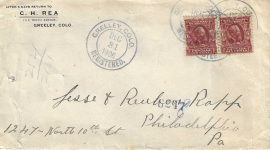 AFTER 5 DAYS RETURN TO
C. H. REA
GREELEY, COLO.
GREELEY, COLO.
DEC
31
1906
REGISTERED.
Jesse & Reuben Rapp
1247-North 10th St
Philadelphia
Pa